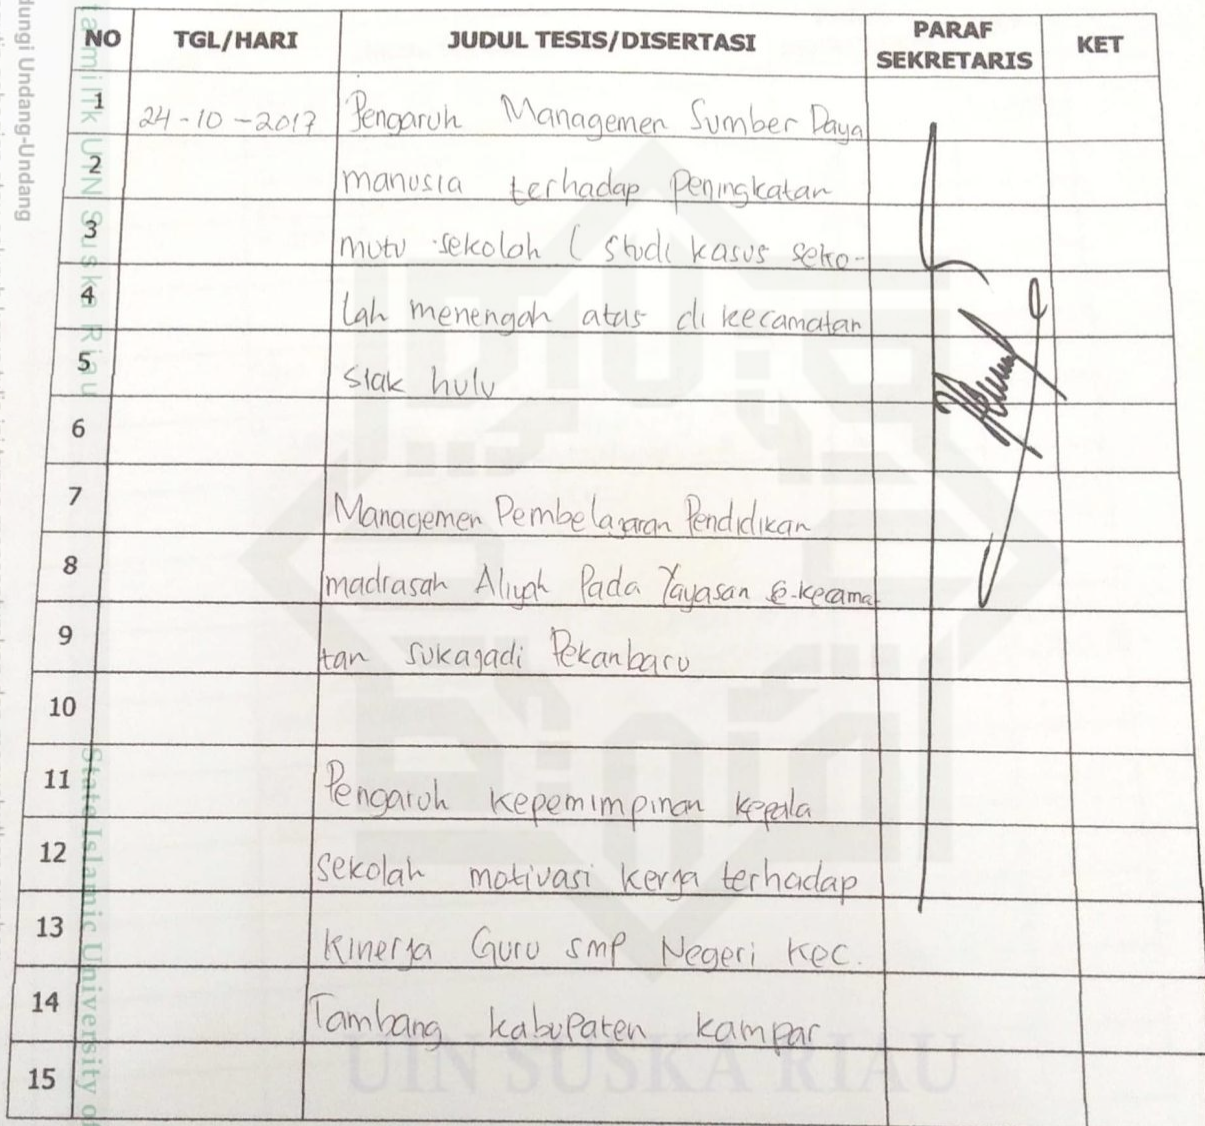 NO TGL/HARI JUDUL TESIS/DISERTASI PARAF SEKRETARIS KET
1 24-10-2017 Pengaruh Managemen Sumber Daya
2 manusia terhadap Peningkatan
3 mutu sekolah ( studi kasus seko-
4 lah menengah atas di kecamatan
5 siak hulu
6
7 Managemen Pembelajaran Pendidikan
8 madrasah Aliyah Pada Yayasan kecama-
9 tan sukajadi Pekanbaru
10
11 Pengaruh kepemimpinan kepala
12 sekolah motivasi kerja terhadap
13 kinerja Guru smp Negeri kec.
14 Tambang kabupaten kampar
15
UIN SUSKA RIAU
dungi Undang-Undang
ta milik UIN Suska Riau
State Islamic University of